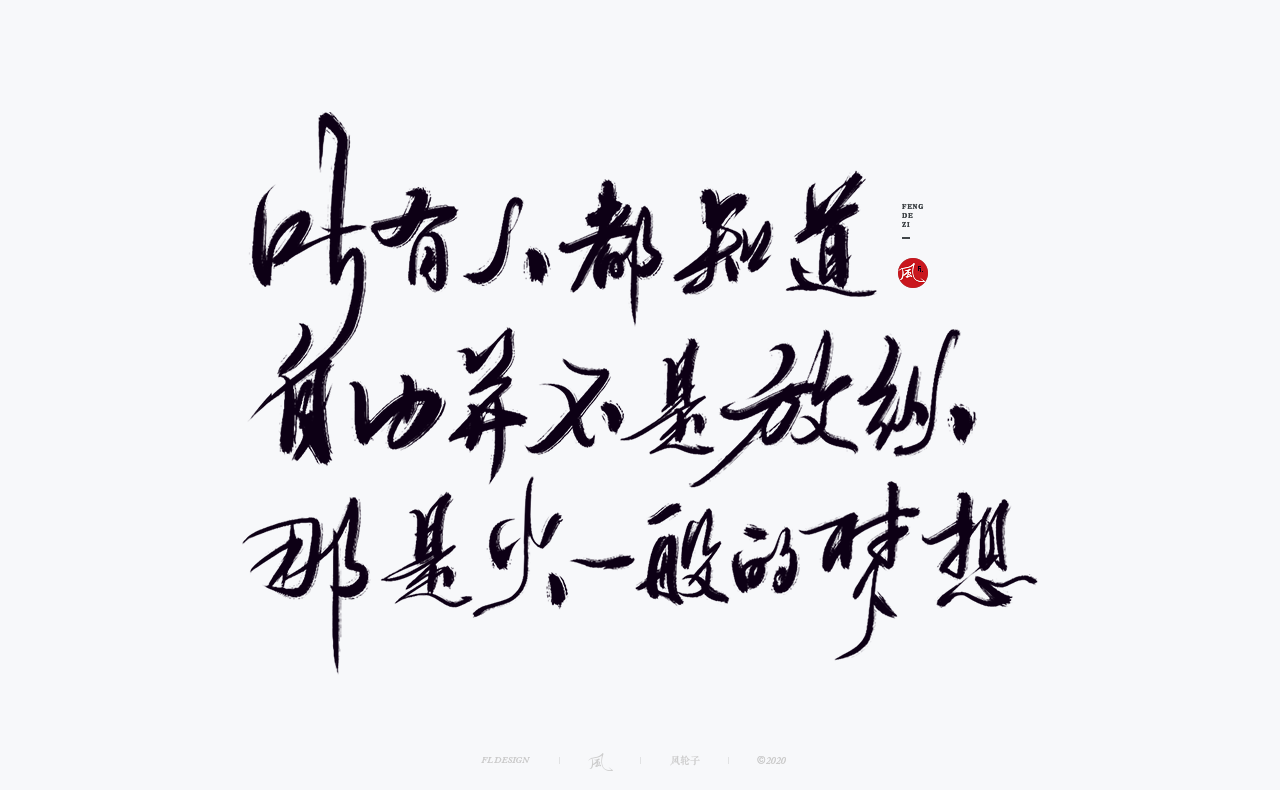 所有人都知道
FENG
DE
ZI
風
自由并不是放纵、
那是火一般的梦想
FL.DESIGN 風 风轮子 ©2020